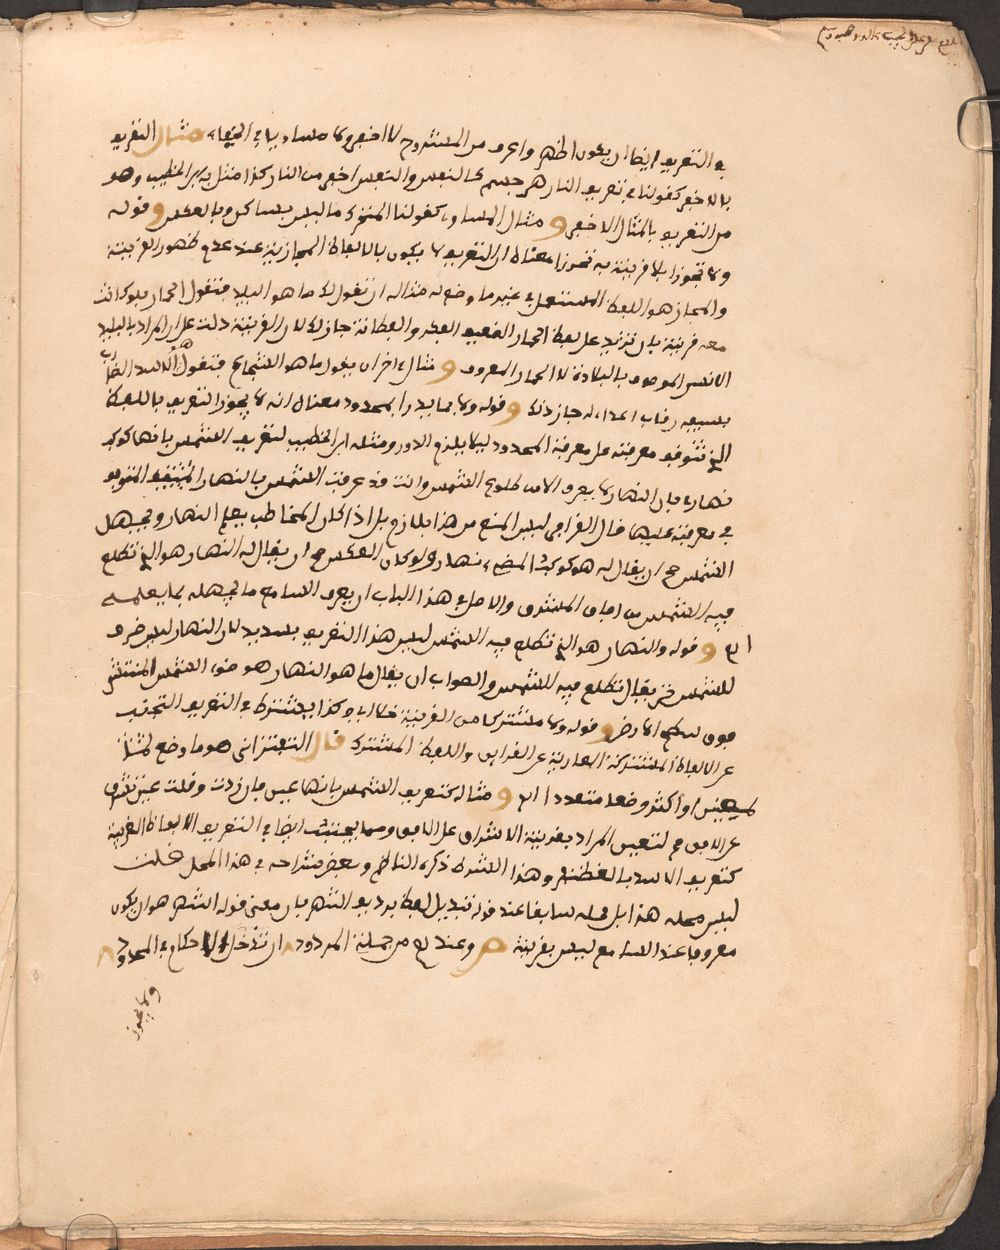 في التعريف ايضا ان يكون اظهر واعرف من المشروح لا اخفى ولا مساويا في الخفاء مثال التعريف
بالاخفى كقولنا في تعريف النار هو جسم كالنفس والنفس اخفى من النار كذا مثل به ابن الخطيب وهو
من التعريف بالمثال الاخفى ومثال المساوي كقولنا المتحرك ما ليس بساكن وبالعكس وقوله
ولا تجوزا بلا قرينة به تحرزا معناه ان التعريف لا يكون بالالفاظ المجازية عند عدم ظهور القرينة
والمجاز هو اللفظ المستعمل في غير ما وضع له مثاله ان تقول له ما هو البليد فتقول الحمار فلو كانت
معه قرينة بان تزيد على لفظ الحمار الفقيد الفكر والفطانة جاز ذلك لان القرينة دلت على ان المراد بالبليد
الانسي الموصوف بالبلادة لا الحمار المعروف ومثال ءاخر ان يقول ما هو الشجاع فتقول هو الاسد الضارب
بسيفه رقاب اعداءه جاز ذلك وقوله ولا بما يدرا بمحدود معناه انه لا يجوز التعريف باللفظ
الذي تتوقف معرفته على معرفة المحدود ليلا يلزم الدور ومثله ابن الخطيب لتعريف الشمس بانها كوكب
نهاري فان النهار لا يعرف الا من طلوع الشمس وانت قد عرفت الشمس بالنهار المتوقف
في معرفته عليها قال القرافي ليس المنع من هذا بلازم بل اذا كان المخاطب يعلم النهار ويجهل
الشمس صح ان يقال له هو كوكب المضيء نهارا ولو كان العكس صح ان يقال له النهار هو الذي تطلع
فيه الشمس من افاق المشرق والاصل في هذا الباب ان يعرف السامع ما يجهله بما يعلمه
اه وقوله والنهار هو الذي تطلع فيه الشمس ليس هذا التعريف بسديد لان النهار ليس ظرف
للشمس حتى يقال تطلع فيه الشمس والصواب ان يقال ما هو النهار هو ضوء الشمس المنتشر
فوق سطح الارض وقوله ولا مشتركا من القرينة خلا اي وكذا يشترط في التعريف التجنب
عن الالفاظ المشتركة العارية عن القراين واللفظ المشترك قال التفتزاني هو ما وضع
لمعنيين او اكثر وضعا متعددا اه ومثاله كتعريف الشمس بانها عين فان زدت وقلت عين تشرق
على الافق صح لتعيين المراد بقرينة الاشراق على الافق ومما يجتنب ايضا في التعريف الالفاظ الغريبة
كتعريف الاسد بالغضنفر وهذا الشرط ذكره الناظم وبعض شراحه في هذا المحل قلت
ليس محله هذا بل محله سابقا عند قوله تبديل لفظ برديف اشهر فان معنى قوله اشهر هو ان يكون
معروفا عند السامع ليس بغريبة ص وعندهم من جملة المردود ان تدخل الاحكام في الحدود
ولا يجوز